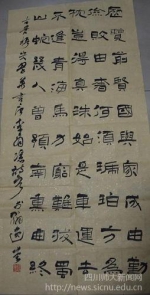 歷覽前賢國與家成由勤
儉破由奢何須琥珀方為
枕豈得真珠始是車運去
不逢青海馬力窮難拔蜀
山蛇幾人曾預南薰曲終
古蒼梧哭翠華
四川师大新闻网
news.sicnu.edu.cn